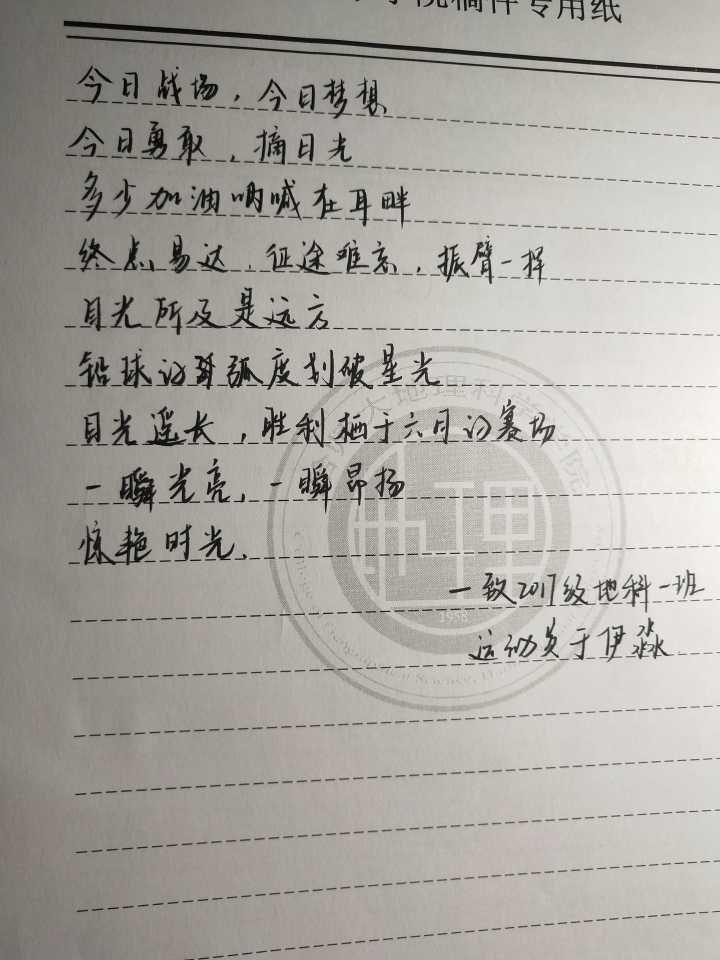 稿件专用纸
今日战场，今日梦想
今日勇敢，摘日光
多少加油呐喊在耳畔
终点易达，征途难忘，振臂一挥
目光所及是远方
铅球的弧度划破星光
目光遥长，胜利栖于六月的赛场
一瞬光亮，一瞬昂扬
惊艳时光．
一致2017级地科一班
运动员于伊淼
地理
1958